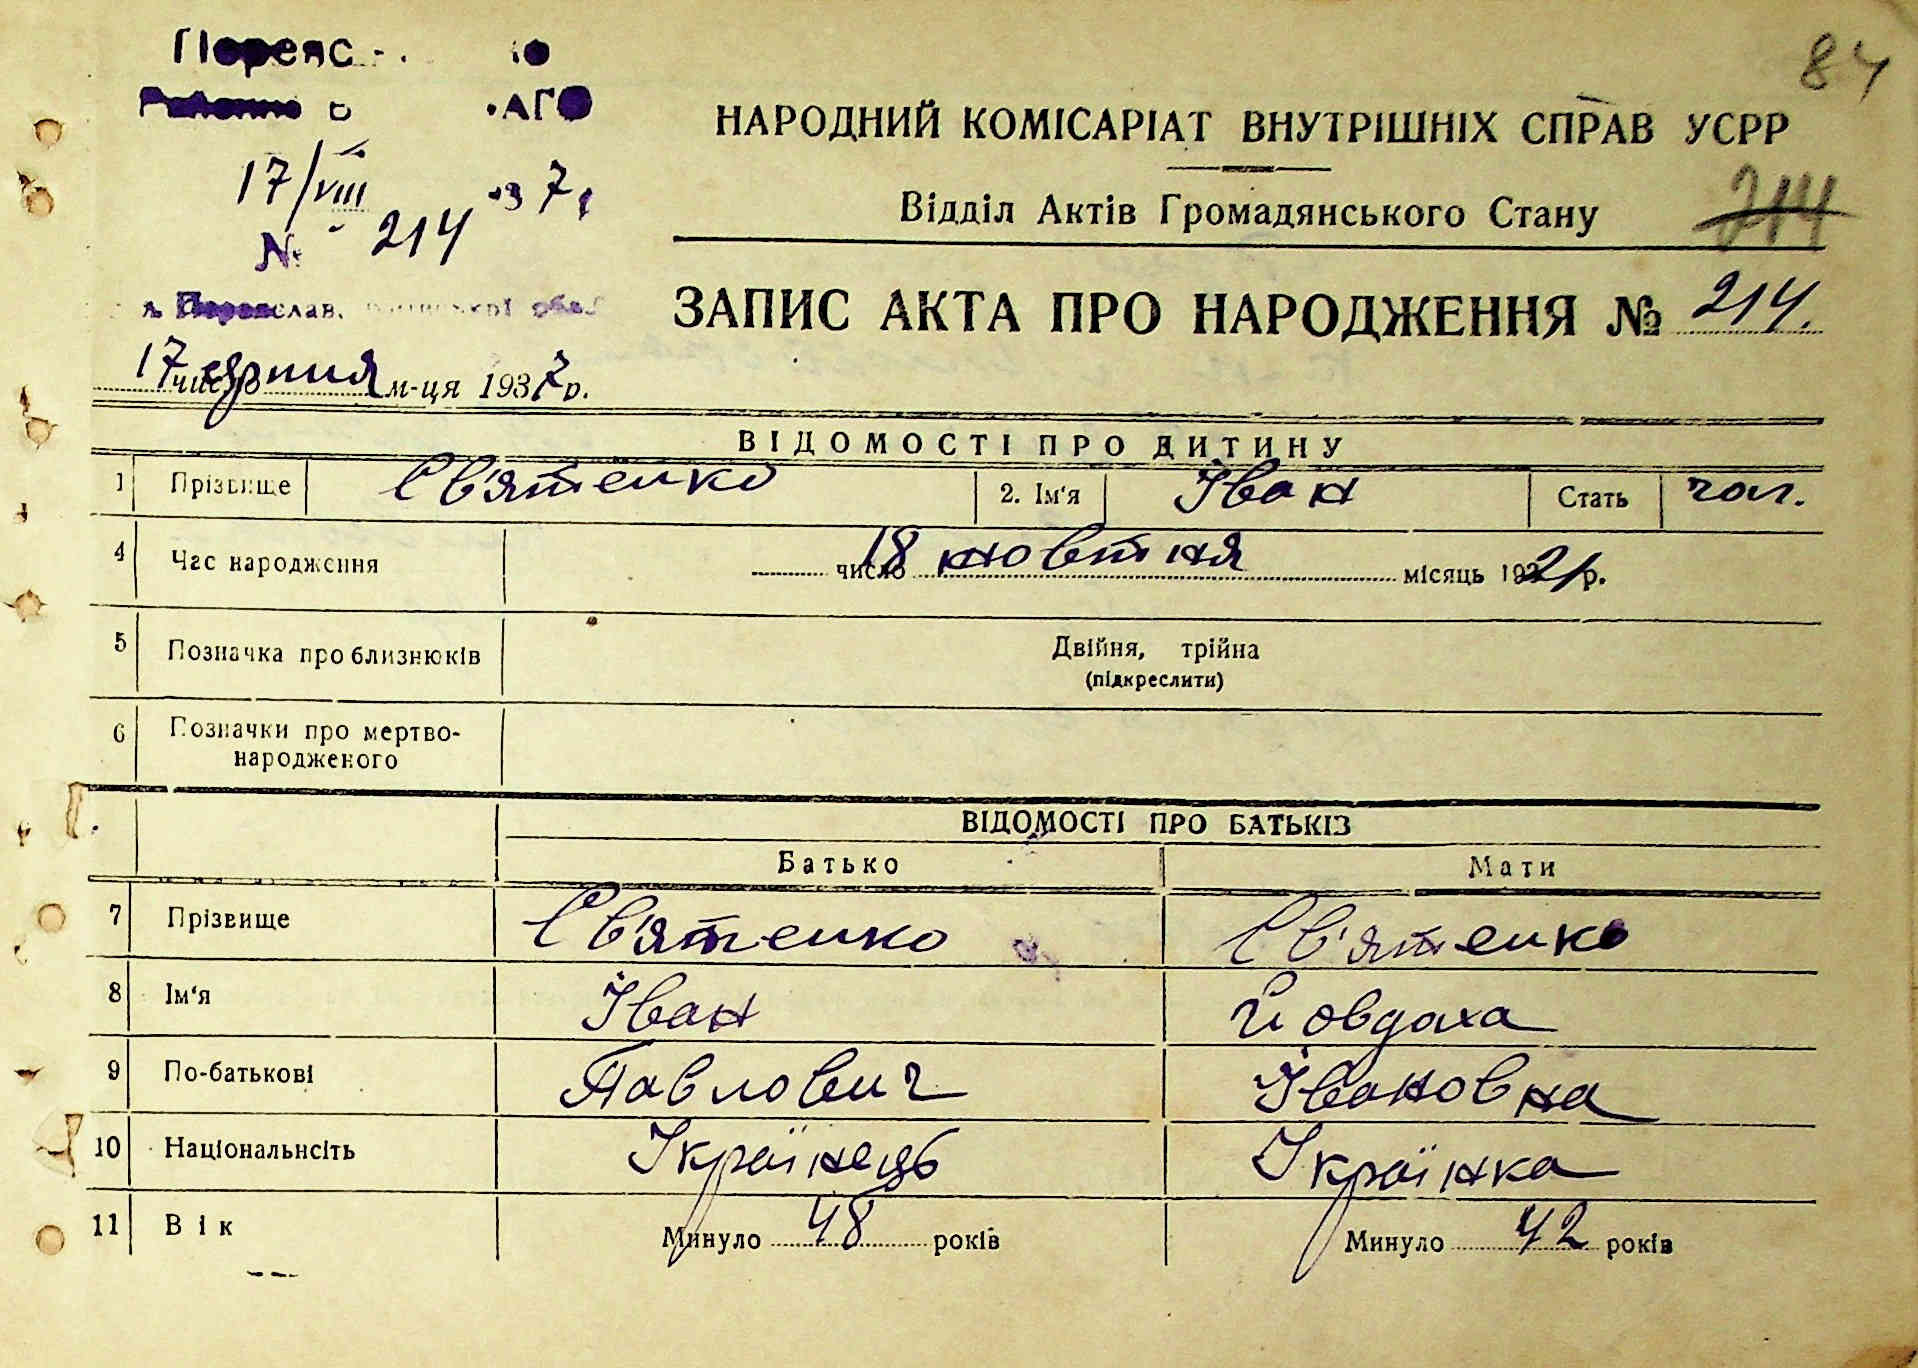 84
НАРОДНИЙ КОМІСАРІАТ ВНУТРІШНІХ СПРАВ УСРР
17/VIII 37
214
214
Відділ Актів Громадянського Стану
№ 214
ЗАПИС АКТА ПРО НАРОДЖЕННЯ № 214.
17 число серпня м-ця 1937 р.
ВІДОМОСТІ ПРО ДИТИНУ
1 Прізвище Св'ятенко 2. Ім'я Іван Стать чол.
4 Час народження 18 число жовтня місяць 1921 р.
5 Позначка про близнюків Двійня, трійна
(підкреслити)
6 Позначки про мертво-
народженого
ВІДОМОСТІ ПРО БАТЬКІВ
Батько Мати
7 Прізвище Св'ятенко Св'ятенко
8 Ім'я Іван Йовдаха
9 По-батькові Павлович Івановна
10 Національнсіть Українець Українка
11 Вік Минуло 48 років Минуло 42 років